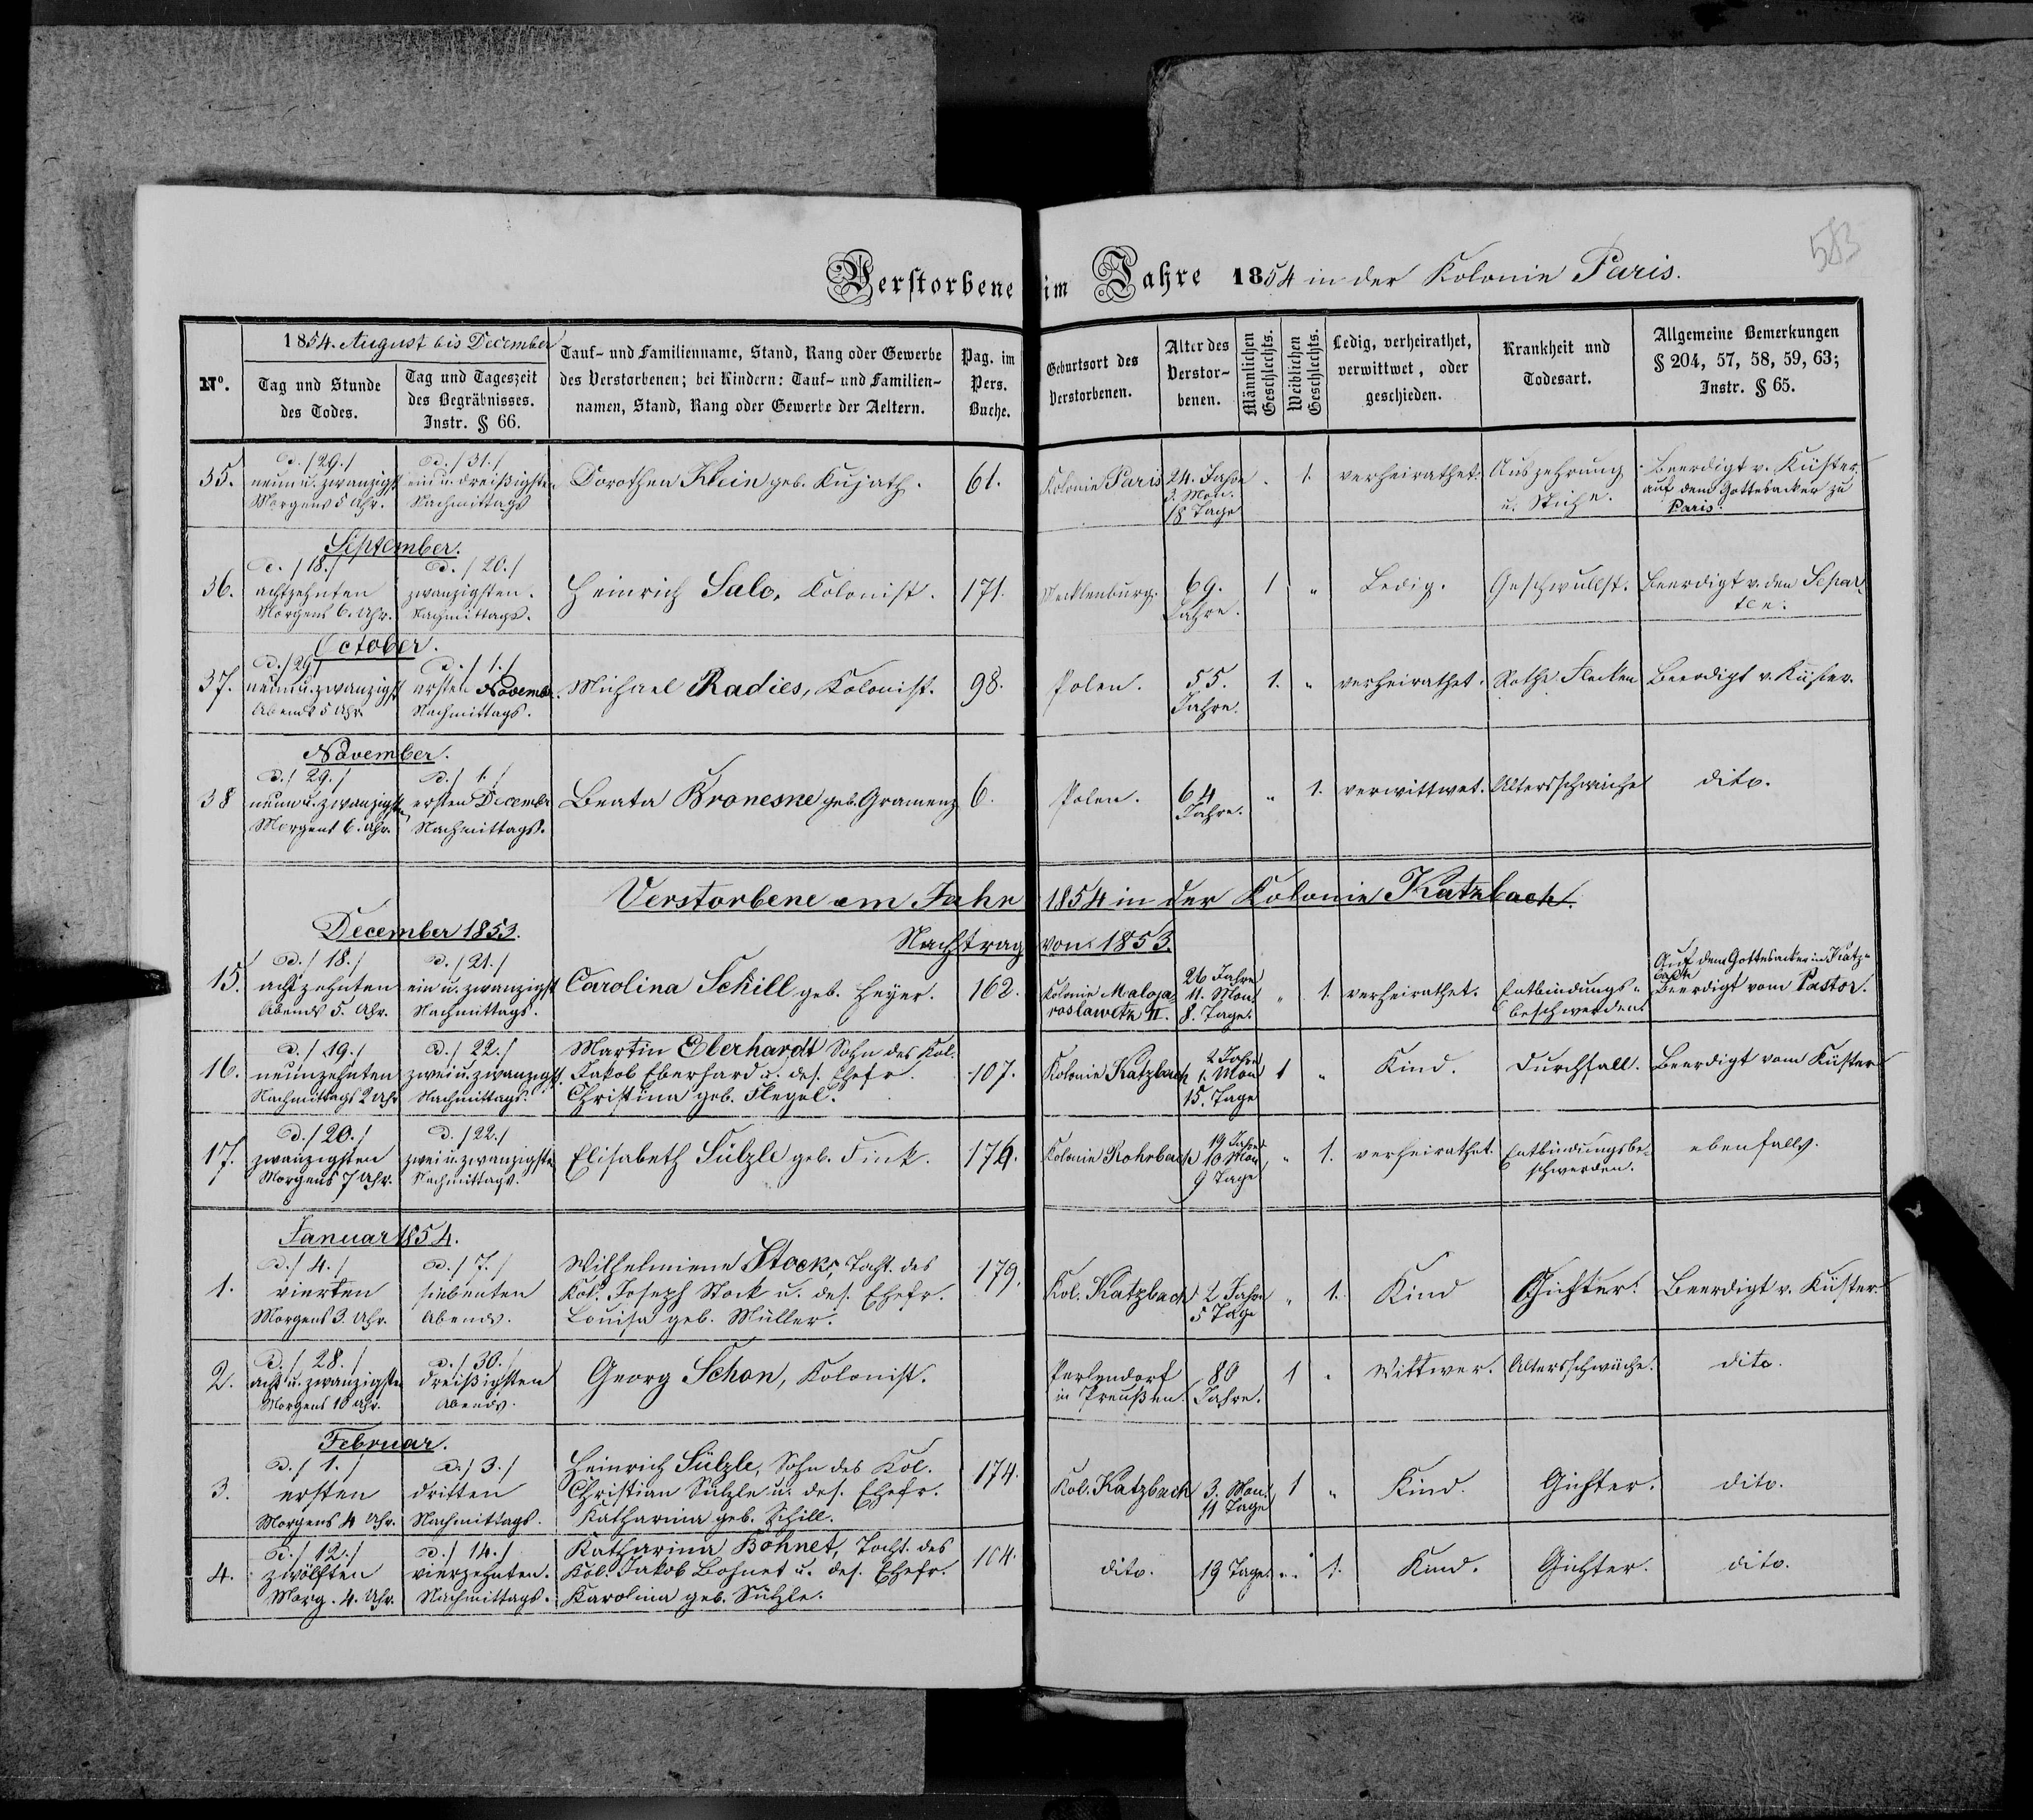 583
Verstorbene im Jahre 1854 in der Kolonie Paris.
1854. August bis December
No.
Tag und Stunde des Todes.
Tag und Tageszeit des Begräbnisses. Instr. § 66.
Tauf- und Familienname, Stand, Rang oder Gewerbe des Verstorbenen; bei Kindern: Tauf- und Familien-namen, Stand, Rang oder Gewerbe der Aeltern.
Pag. im Pers. Buche.
Geburtsort des Verstorbenen.
Alter des Verstor-benen.
Männlichen Geschlechts.
Weiblichen Geschlechts.
Ledig, verheirathet, verwittwet, oder geschieden.
Krankheit und Todesart.
Allgemeine Bemerkungen § 204, 57, 58, 59, 63; Instr. § 65.
35. d. /29./ neun u. zwanzigst Morgens 5 Uhr. d. /31./ ein u. dreißigsten Nachmittags Dorothea Klein geb. Kujath. 61. Kolonie Paris 24. Jahre 3. Mon. 18 Tage . 1. verheirathet. Auszehrung u. Beerdigt v. Küster. auf dem Gottesacker zu Paris.
September.
36. d. /18./ achtzehnten Morgens 6. Uhr. d. /20./ zwanzigsten. Nachmittags. Heinrich Salo, Kolonist. 171. Mecklenburg. 69. Jahre. 1 " Ledig. Geschwulst. Beerdigt v. den Separ-
October.
37. d. /29/ neun u. zwanzigst Abends 5 Uhr d. /1./ ersten Novemb. Nachmittags. Michael Radies, Kolonist. 98. Polen. 55. Jahre. 1. " verheirathet. Rothe Flecken Beerdigt v. Küster.
November.
38 d. /29./ neun u. zwanzigsten Morgens 6. Uhr. d. /1./ ersten Decembr Nachmittags. Beata Broneske geb. Gramenz 6. Polen. 64 Jahre. " 1. verwittwet. Altersschwäche dito.
Verstorbene im Jahr 1854 in der Kolonie Katzbach.
December 1853.
Nachtrag von 1853.
15. d. /18./ achtzehnten Abends 5. Uhr. d. /21./ ein u. zwanzigst Nachmittags. Carolina Schill geb. Heyer. 162. Kolonie Maloja-roslawetz II. 26 Jahre 11. Mon. 8. Tage. " 1. verheirathet. Entbindungs-beschwerden. Auf dem Gottesacker in Katz-bach Beerdigt vom Pastor.
16. d. /19./ neunzehnten Nachmittags 2 Uhr d. /22./ zwei u. zwanzigst. Nachmittags. Martin Eberhardt Sohn des Kol. Jakob Eberhard u. des. Ehefr. Christina geb. Flegel. 107. Kolonie Katzbach 2 Jahre 1. Mon 15. Tage 1 " Kind. Durchfall. Beerdigt vom Küster
17. d. /20./ zwanzigsten Morgens 7 Uhr. d. /22./ zwei u. zwanzigsten Nachmittags. Elisabeth Sülzle geb. Fink. 176. Kolonie Rohrbach 19 Jahre 10 Mon 9 Tage " 1. verheirathet. Entbindungsbe-schwerden. ebenfalls.
Januar 1854.
1. d. /4./ vierten Morgens 3. Uhr. d. /7./ siebenten Abends. Wilhelmiene Stock, Tocht. des Kol. Joseph Stock u. des. Ehefr. Louisa geb. Müller. 179. Kol. Katzbach 2 Jahre 5 Tage " 1. Kind Gichter. Beerdigt v. Küster.
2. d. /28./ acht u. zwanzigsten Morgens 10 Uhr. d. /30./ dreißigsten Abends. Georg Schon, Kolonist. Perlendorf in Preußen. 80 Jahre. 1 " Wittwer. Altersschwäche. dito.
Februar.
3. d. /1./ ersten Morgens 4 Uhr. d. /3./ dritten Nachmittags. Heinrich Sülzle, Sohn des Kol. Christian Sülzle u. des. Ehefr. Katharina geb. Schill. 174. Kol. Katzbach 3. Mon. 11 Tage 1 " Kind. Gichter. dito.
4. d. /12./ zwölften Morg. 4. Uhr. d. /14./ vierzehnten. Nachmittags. Katharina Bohnet, Tocht. des Kol. Jakob Bohnet u. des. Ehefr. Karolina geb. Sülzle. 104. dito. 19 Tage. " 1. Kind. Gichter. dito.